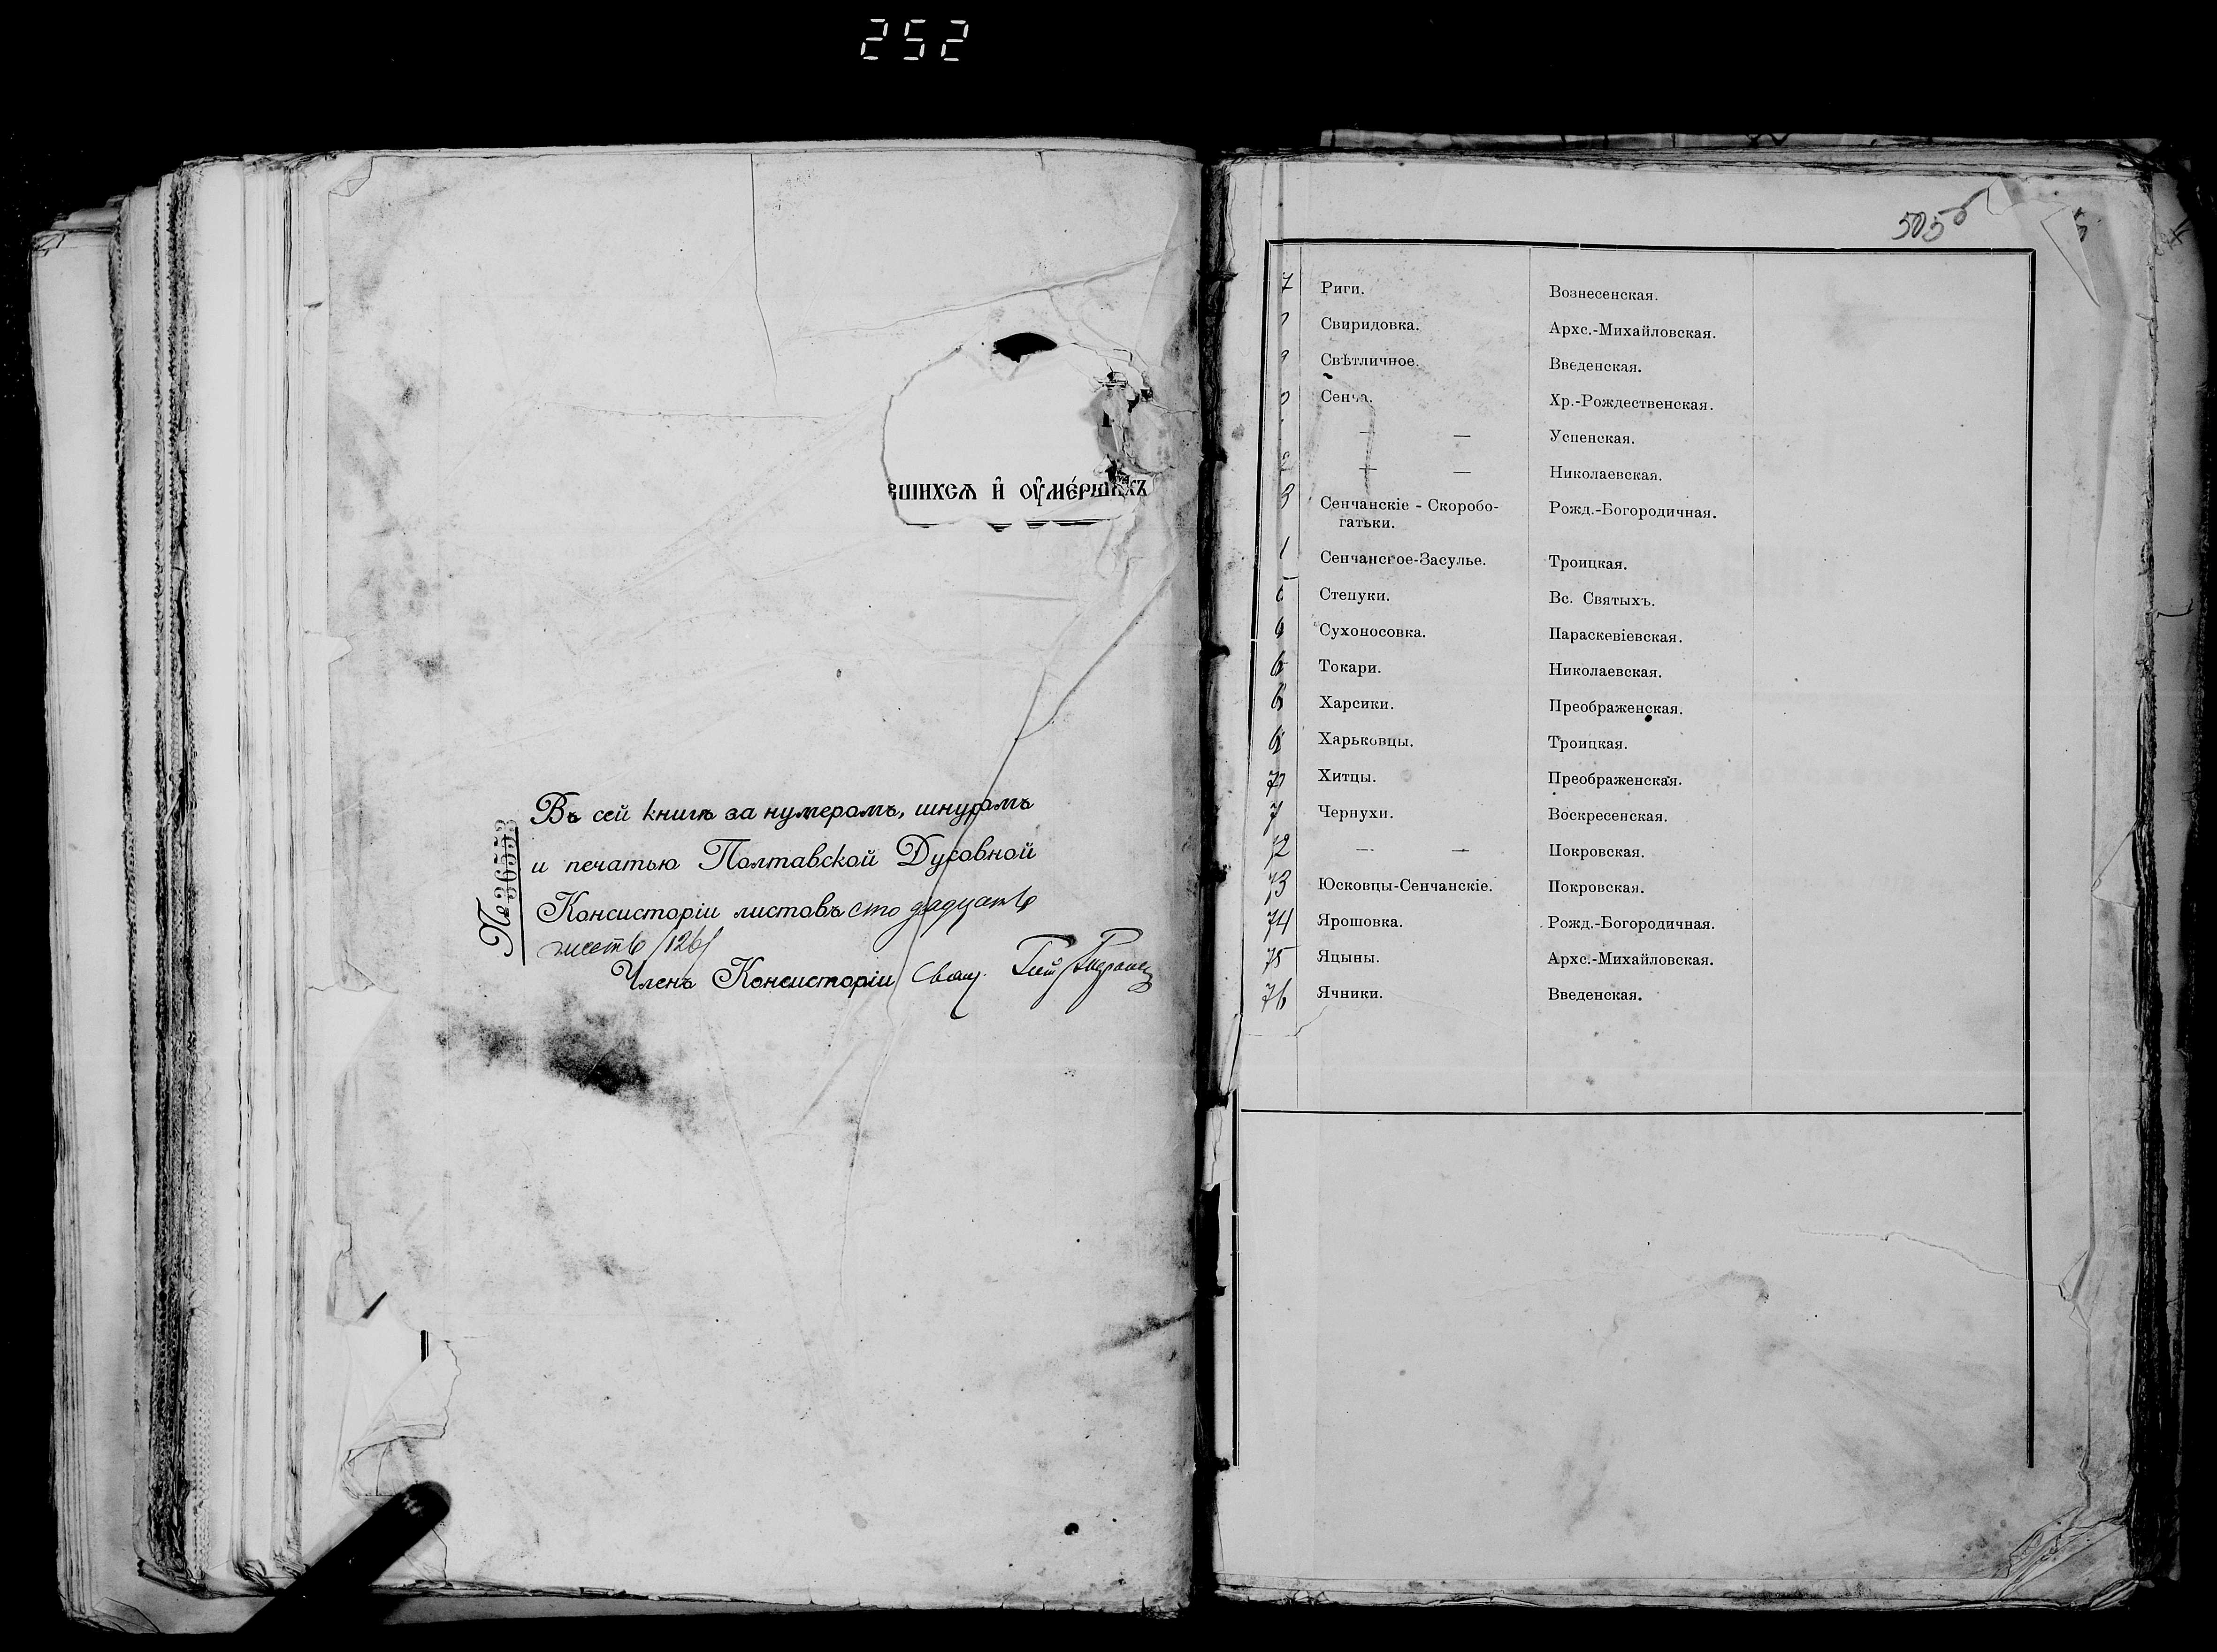 252
вшихсѧ и҆ ᲂу҆ме́ршихъ
№ 36553
Въ сей книгѣ за нумеромъ, шнуромъ
и печатью Полтавской Духовной
Консисторіи листовъ сто двадцать
шесть /126/
Членъ Консисторіи Свящ.
505
Риги. Вознесенская.
Свиридовка. Архс.-Михайловская.
Свѣтличное. Введенская.
Сенча. Хр.-Рождественская.
— — Успенская.
— — Николаевская.
Сенчанскіе - Скоробо- Рожд.-Богородичная.
гатьки.
Сенчанское-Засулье. Троицкая.
Степуки. Вс. Святыхъ.
Сухоносовка. Параскевіевская.
Токари. Николаевская.
Харсики. Преображенская.
Харьковцы. Троицкая.
Хитцы. Преображенская.
7 Чернухи. Воскресенская.
72 — — Покровская.
73 Юсковцы-Сенчанскіе. Покровская.
74 Ярошовка. Рожд.-Богородичная.
75 Яцыны. Архс.-Михайловская.
76 Ячники. Введенская.